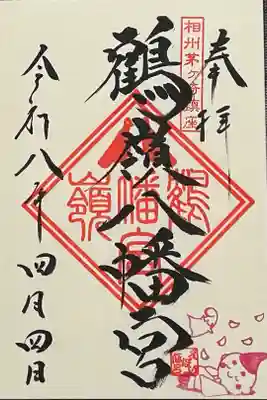 奉拝
相州茅ヶ崎鎮座
鶴嶺八幡宮
鶴嶺
八幡宮
令和八年 四月四日